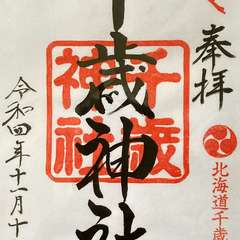 奉拝
北海道千歳
千歳神社
千歳神社
令和四年十一月十